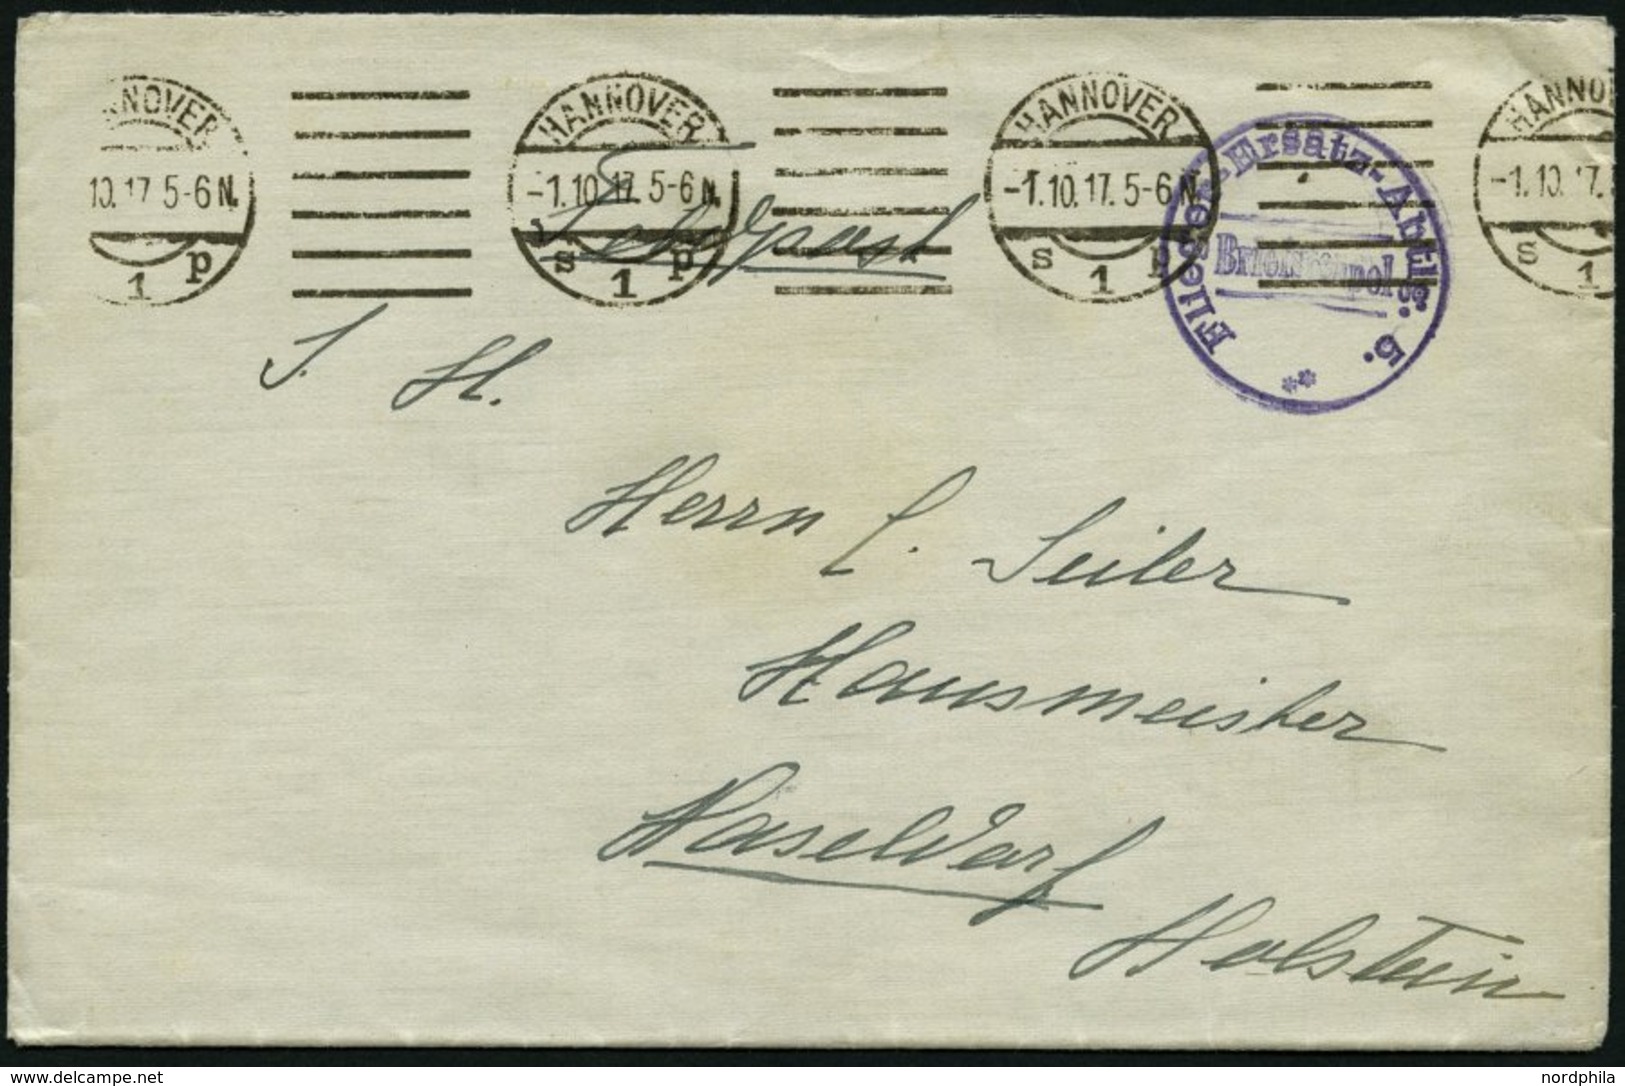 HANNOVER HANNOVER HANNOVER HANNO
10.17.5-6N. -1.10.17.5-6N. -1.10.17.5-6N -1.10.17.
1 p s 1 p s 1 p s 1
Feldpost
Flieger-Ersatz-Abtlg. 5.
Briefstempel
**
S. H.
Herrn C. Seiler
Hausmeister
Haseldorf
Holstein
www.delcampe.net
nordphila